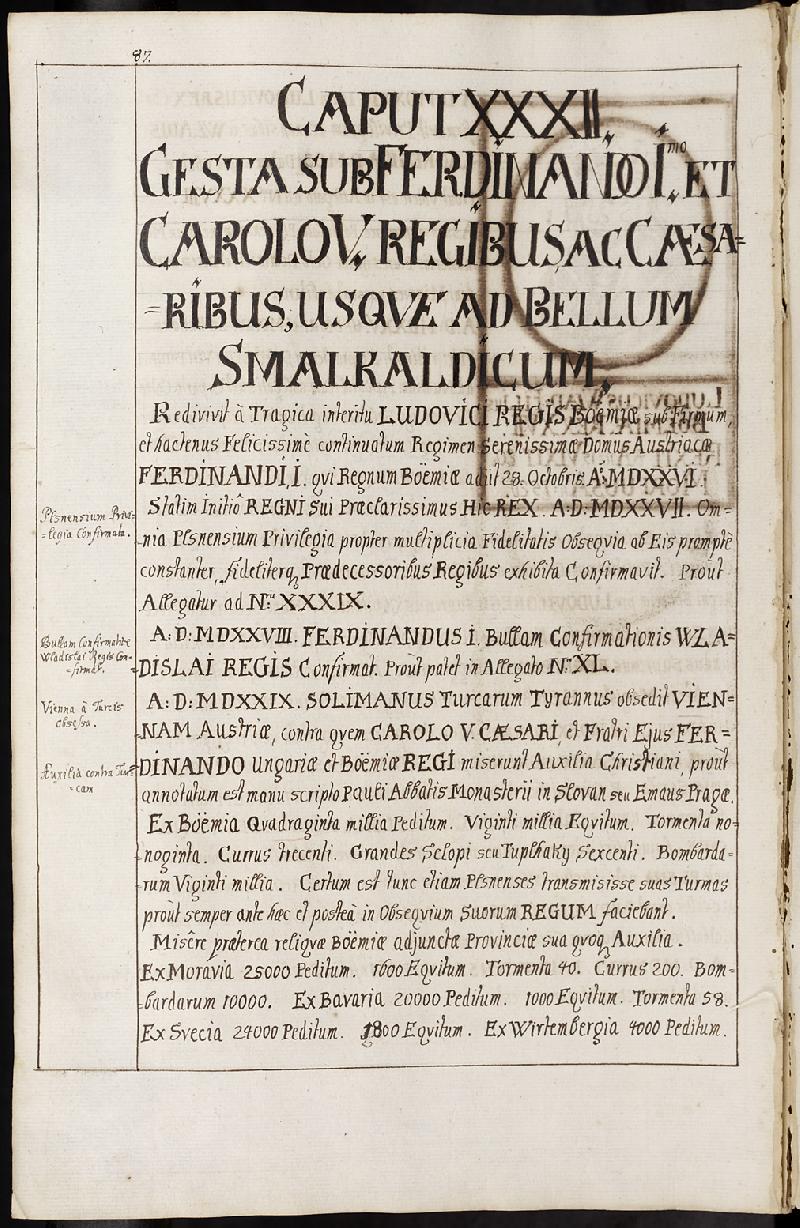 87.
CAPUT XXXII.
GESTA SUB FERDINANDO I.mo ET
CAROLO V. REGIBUS AC CÆSA=
=RIBUS, USQVE AD BELLUM
SMALKALDICUM.
Redivivit à Tragica interitu LUDOVICI REGIS Boëmiæ sub firmum,
et hactenus Felicissimè continuatum Regimen Serenissimæ Domus Austriacæ
FERDINANDI, I. qvi Regnum Boëmiæ adiit 23. Octobris A: MDXXVI.
Plsnensium Privi=
=legia Confirmata.
Statim Initio REGNI Sui Præclarissimus Hic REX. A: D: MDXXVII. Om=
nia Plsnensium Privilegia propter multiplicia Fidelitatis Obseqvia ab Eis promptè
constanter, fideliterq Prædecessoribus Regibus exhibita Confirmavit. Prout
Allegatur ad No XXXIX.
Bullam Confirmationis
Wladislai Regis Con=
=firmat.
A: D: MDXXVIII. FERDINANDUS I. Bullam Confirmationis WLA=
DISLAI REGIS Confirmat. Prout patet in Allegato No XL.
Vienna à Turcis
obsessa.
A: D: MDXXIX. SOLIMANUS Turcarum Tyrannus obsedit VIEN=
NAM Austriæ, contra qvem CAROLO V. CÆSARI, et Fratri Ejus FER=
Auxilia contra Tur=
=cam
DINANDO Ungariæ et Boëmiæ REGI miserunt Auxilia Christiani, prout
annotatum est manu scripto Pauli Abbatis Monasterii in Slovan seu Emaus Pragæ.
Ex Boëmia Qvadraginta millia Peditum. Viginti millia Eqvitum. Tormenta no=
noginta. Currus trecenti. Grandes Sclopi seu Tuplhaky Sexcenti. Bombarda=
rum Viginti millia. Certum est tunc etiam Plsnenses transmisisse suas Turmas
prout semper ante hæc et posteà in Obseqvium Suorum REGUM faciebant.
Misêre præterea reliqvæ Boëmiæ adjunctæ Provinciæ sua qvoq Auxilia.
Ex Moravia 25000 Peditum. 1600 Eqvitum. Tormenta 40. Currus 200. Bom=
=bardarum 10000. Ex Bavaria 20000 Peditum. 1000 Eqvitum. Tormenta 58.
Ex Svecia 24000 Peditum. 1800 Eqvitum. Ex Wirtembergia 4000 Peditum.